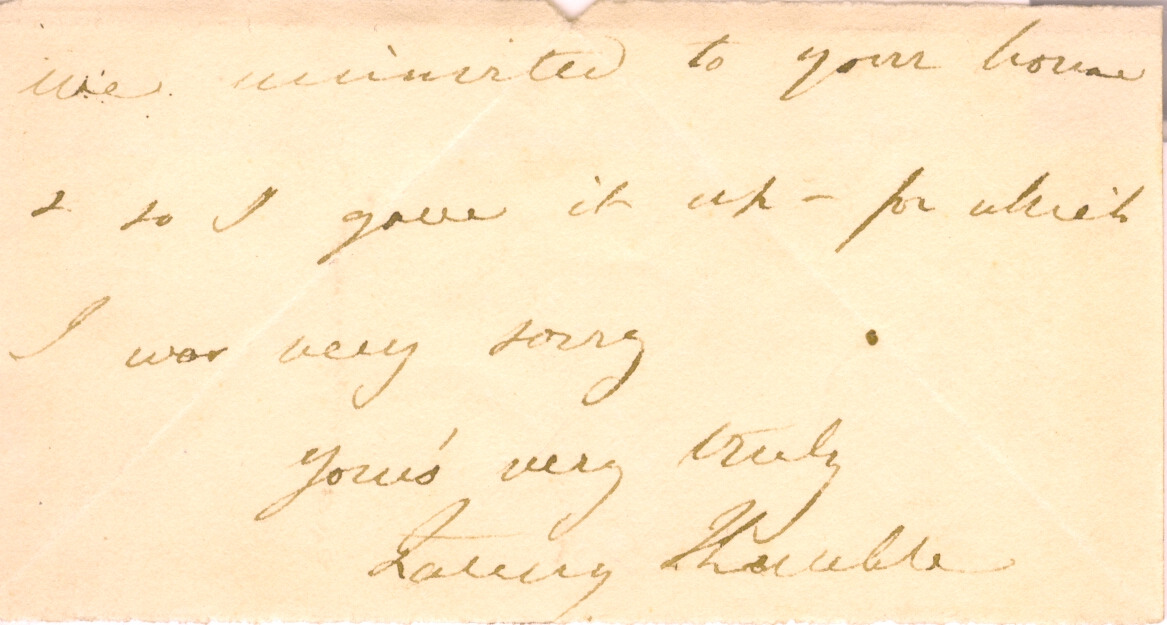 uninvited to your house
& so I gave it up – for which
I was very sorry
Your's very truly